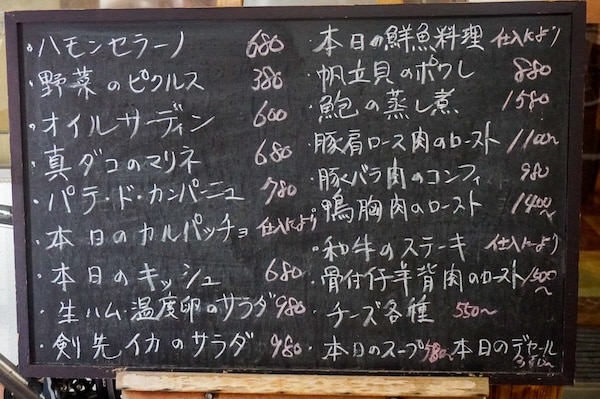 ・ハモンセラーノ 680
・野菜のピクルス 380
・オイルサーディン 600
・真ダコのマリネ 680
・パテ・ド・カンパーニュ 780
・本日のカルパッチョ 仕入により
・本日のキッシュ 680
・生ハム・温度卵のサラダ 980
・剣先イカのサラダ 980
・本日の鮮魚料理 仕入により
・帆立貝のポワレ 880
・鮑の蒸し煮 1580
・豚肩ロース肉のロースト 1100〜
・豚バラ肉のコンフィ 980
・鴨胸肉のロースト 1400〜
・和牛のステーキ 仕入により
・骨付仔羊背肉のロースト 1500〜
・チーズ各種 550〜
・本日のスープ 本日のデセール